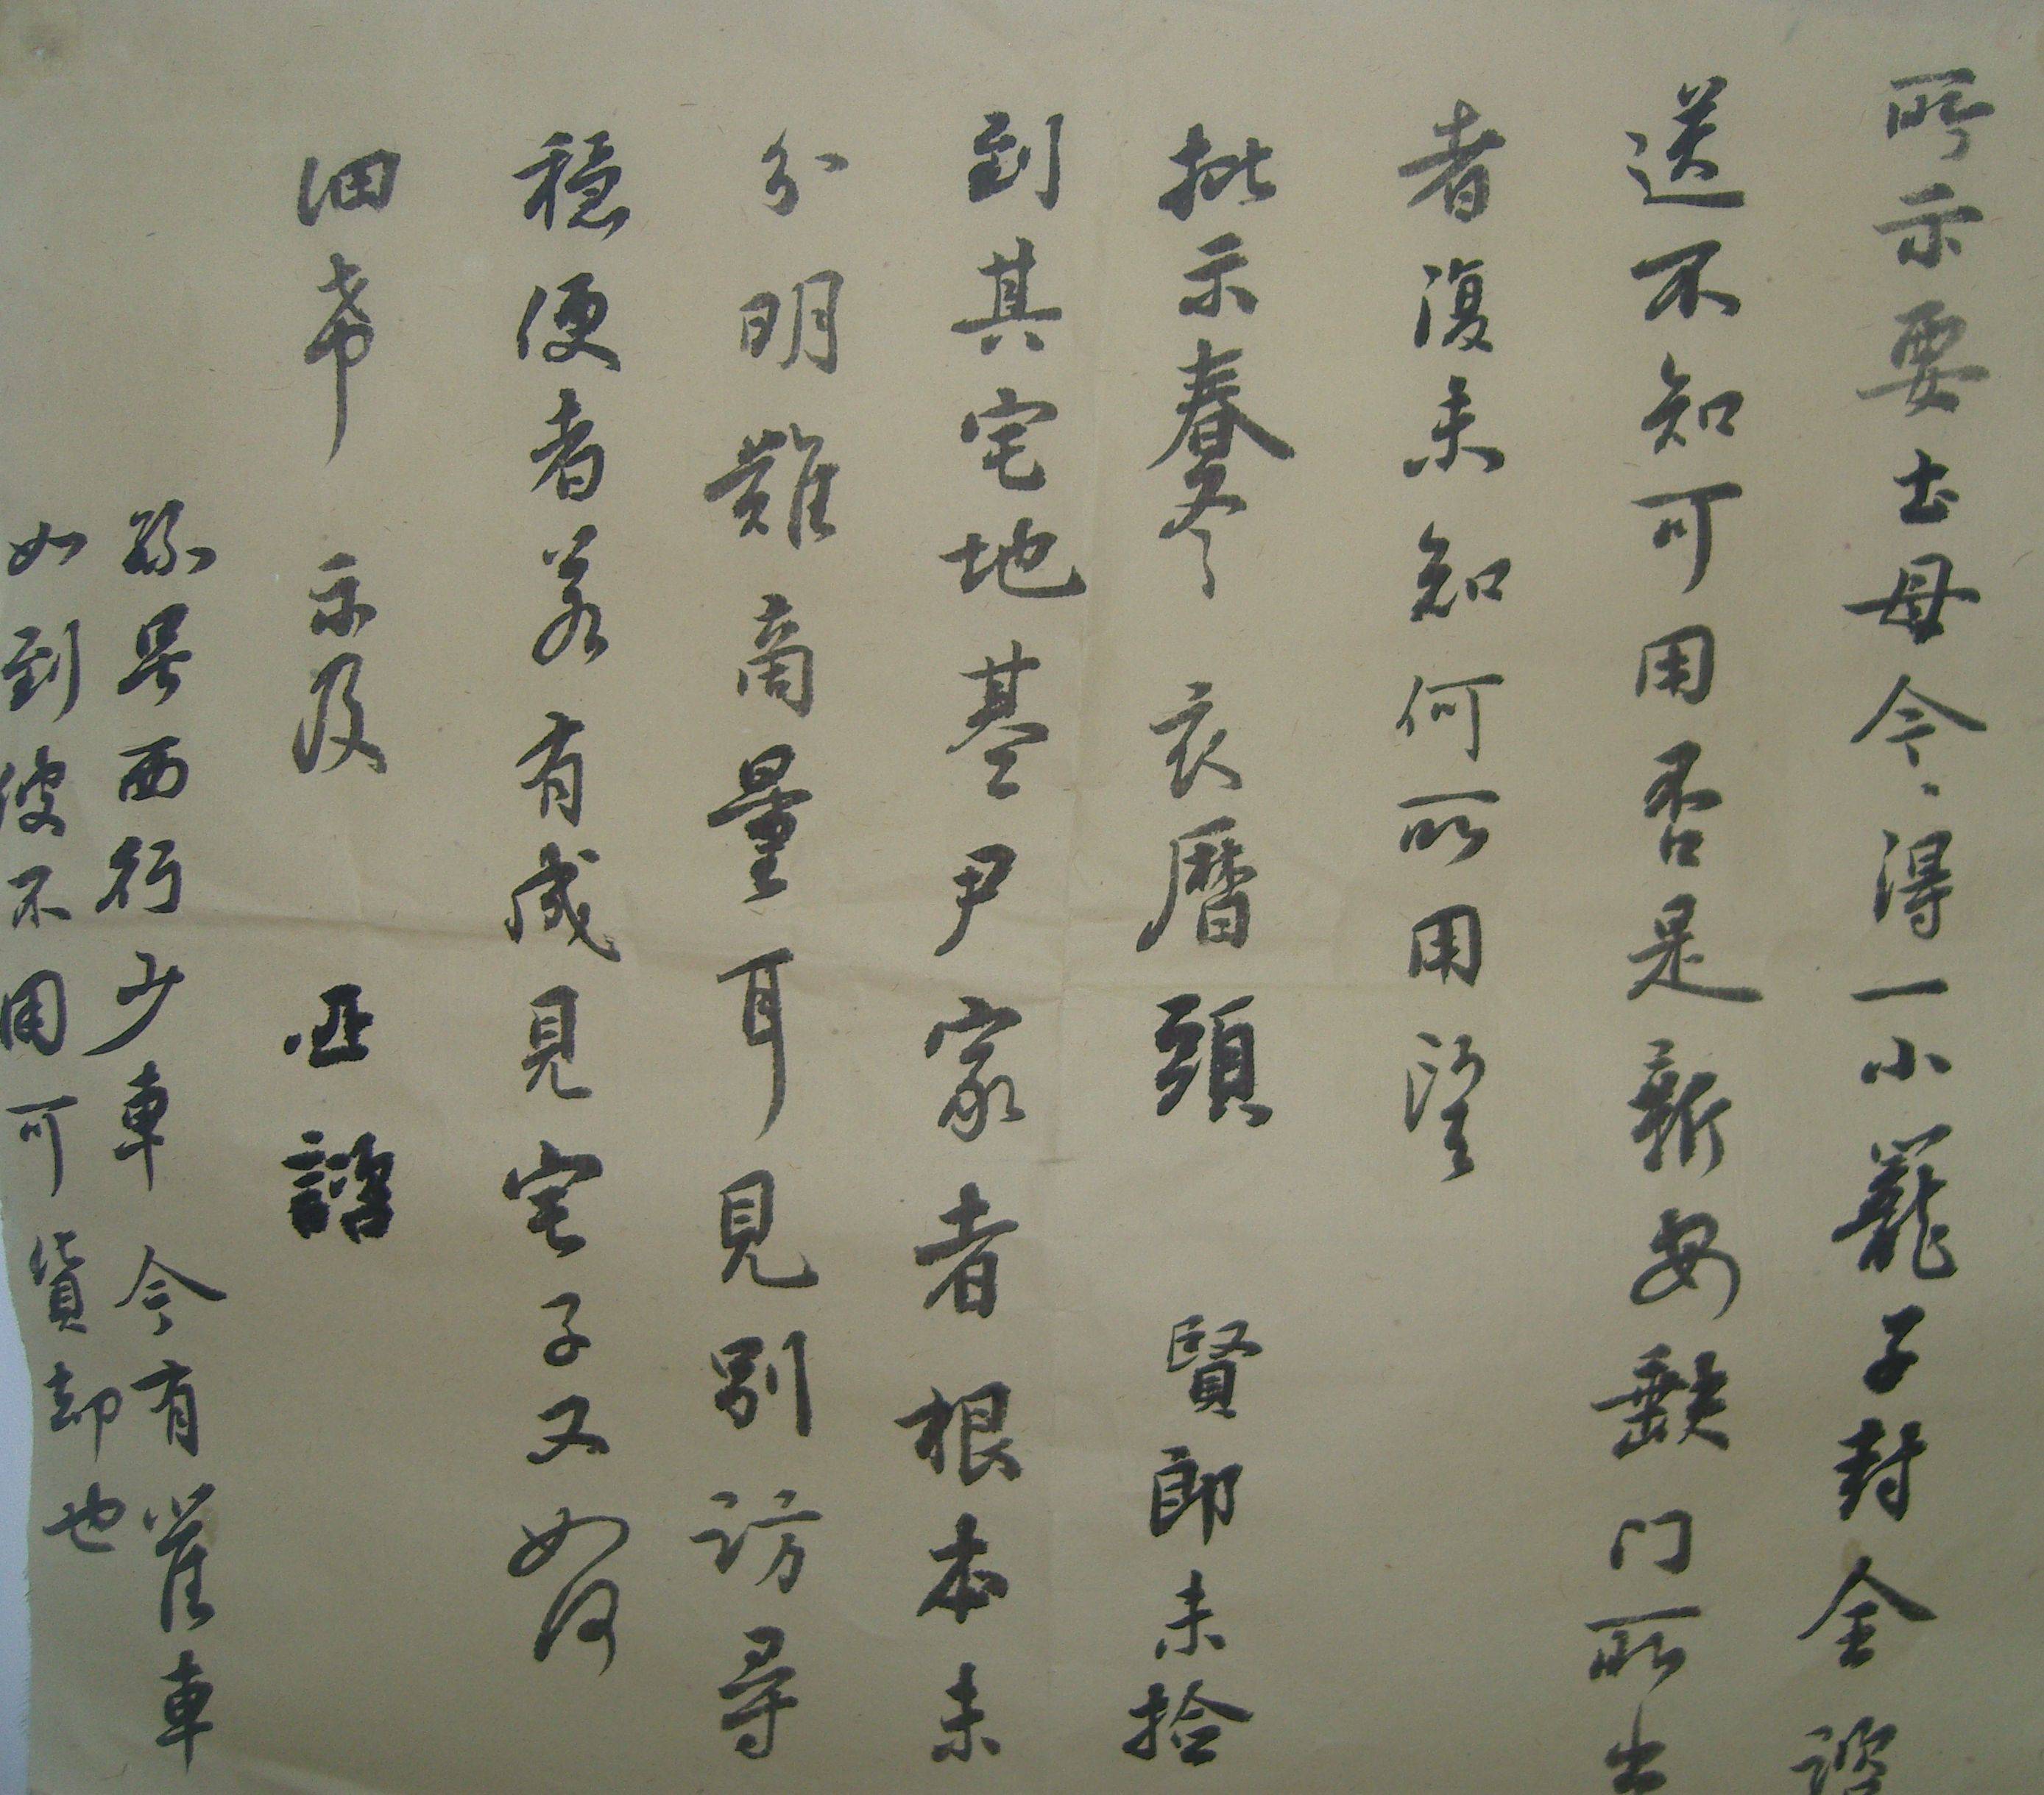 所示要土母今得一小籠子封全諮
送不知可用否是新安缺门所出
者復未知何所用望
批示春冬衣曆頭賢郎未拾
到其宅地基尹家者根本未
分明難商量耳見別訪尋
穩便者若有成見宅子又如何
細希示及諮
孫号西行少車今有蓷車
如到彼不用可貨却也